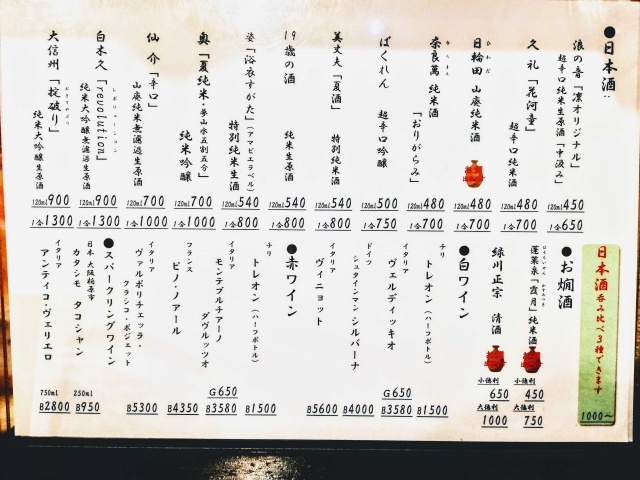 ●日本酒:
浪の音「凛オリジナル」
超辛口純米生原酒「中汲み」
120ml 450
1合 650
久礼「花河童」
超辛口純米酒
120ml 480
1合 700
日輪田 山廃純米酒
ひわた
120ml 480
1合 700
奈良萬 純米酒
ならまん
「おりがらみ」
120ml 480
1合 700
ばくれん 超辛口吟醸
120ml 500
1合 750
美丈夫「夏酒」 特別純米酒
120ml 540
1合 800
19歳の酒 純米生原酒
120ml 540
1合 800
姿「浴衣すがた」(アマビエラベル)
特別純米生酒
120ml 540
1合 800
奥「夏純米・夢山水五割五分」
純米吟醸
120ml 700
1合 1000
仙介「辛口」
山廃純米無濾過生原酒
120ml 700
1合 1000
白木久「revolution」
レボリューション
純米大吟醸無濾過生原酒
120ml 900
1合 1300
大信州「掟破り」
おきてやぶり
純米大吟醸原酒
120ml 900
1合 1300
日本酒 呑み比べ3種できます
1000〜
●お燗酒
蓬莱泉「霞月」純米酒
ほうらいせん かすみつき
小徳利
450
大徳利
750
緑川正宗 清酒
小徳利
650
大徳利
1000
●白ワイン
チリ
トレオン(ハーフボトル)
B1500
イタリア
ヴェルディッキオ
G650
B3580
ドイツ
シュタインマン・シルバーナ
B4000
イタリア
ヴィニョット
B5600
●赤ワイン
チリ
トレオン(ハーフボトル)
B1500
イタリア
モンテプルチアーノ
ダヴルッツオ
G650
B3580
フランス
ピノ・ノアール
B4350
イタリア
ヴァルポリチェッラ・
フランコ・ポジェット
B5300
●スパークリングワイン
日本 大阪柏原市
カタシモ タコシャン
250ml
B950
イタリア
アンティコ・ヴェリエロ
750ml
B2800